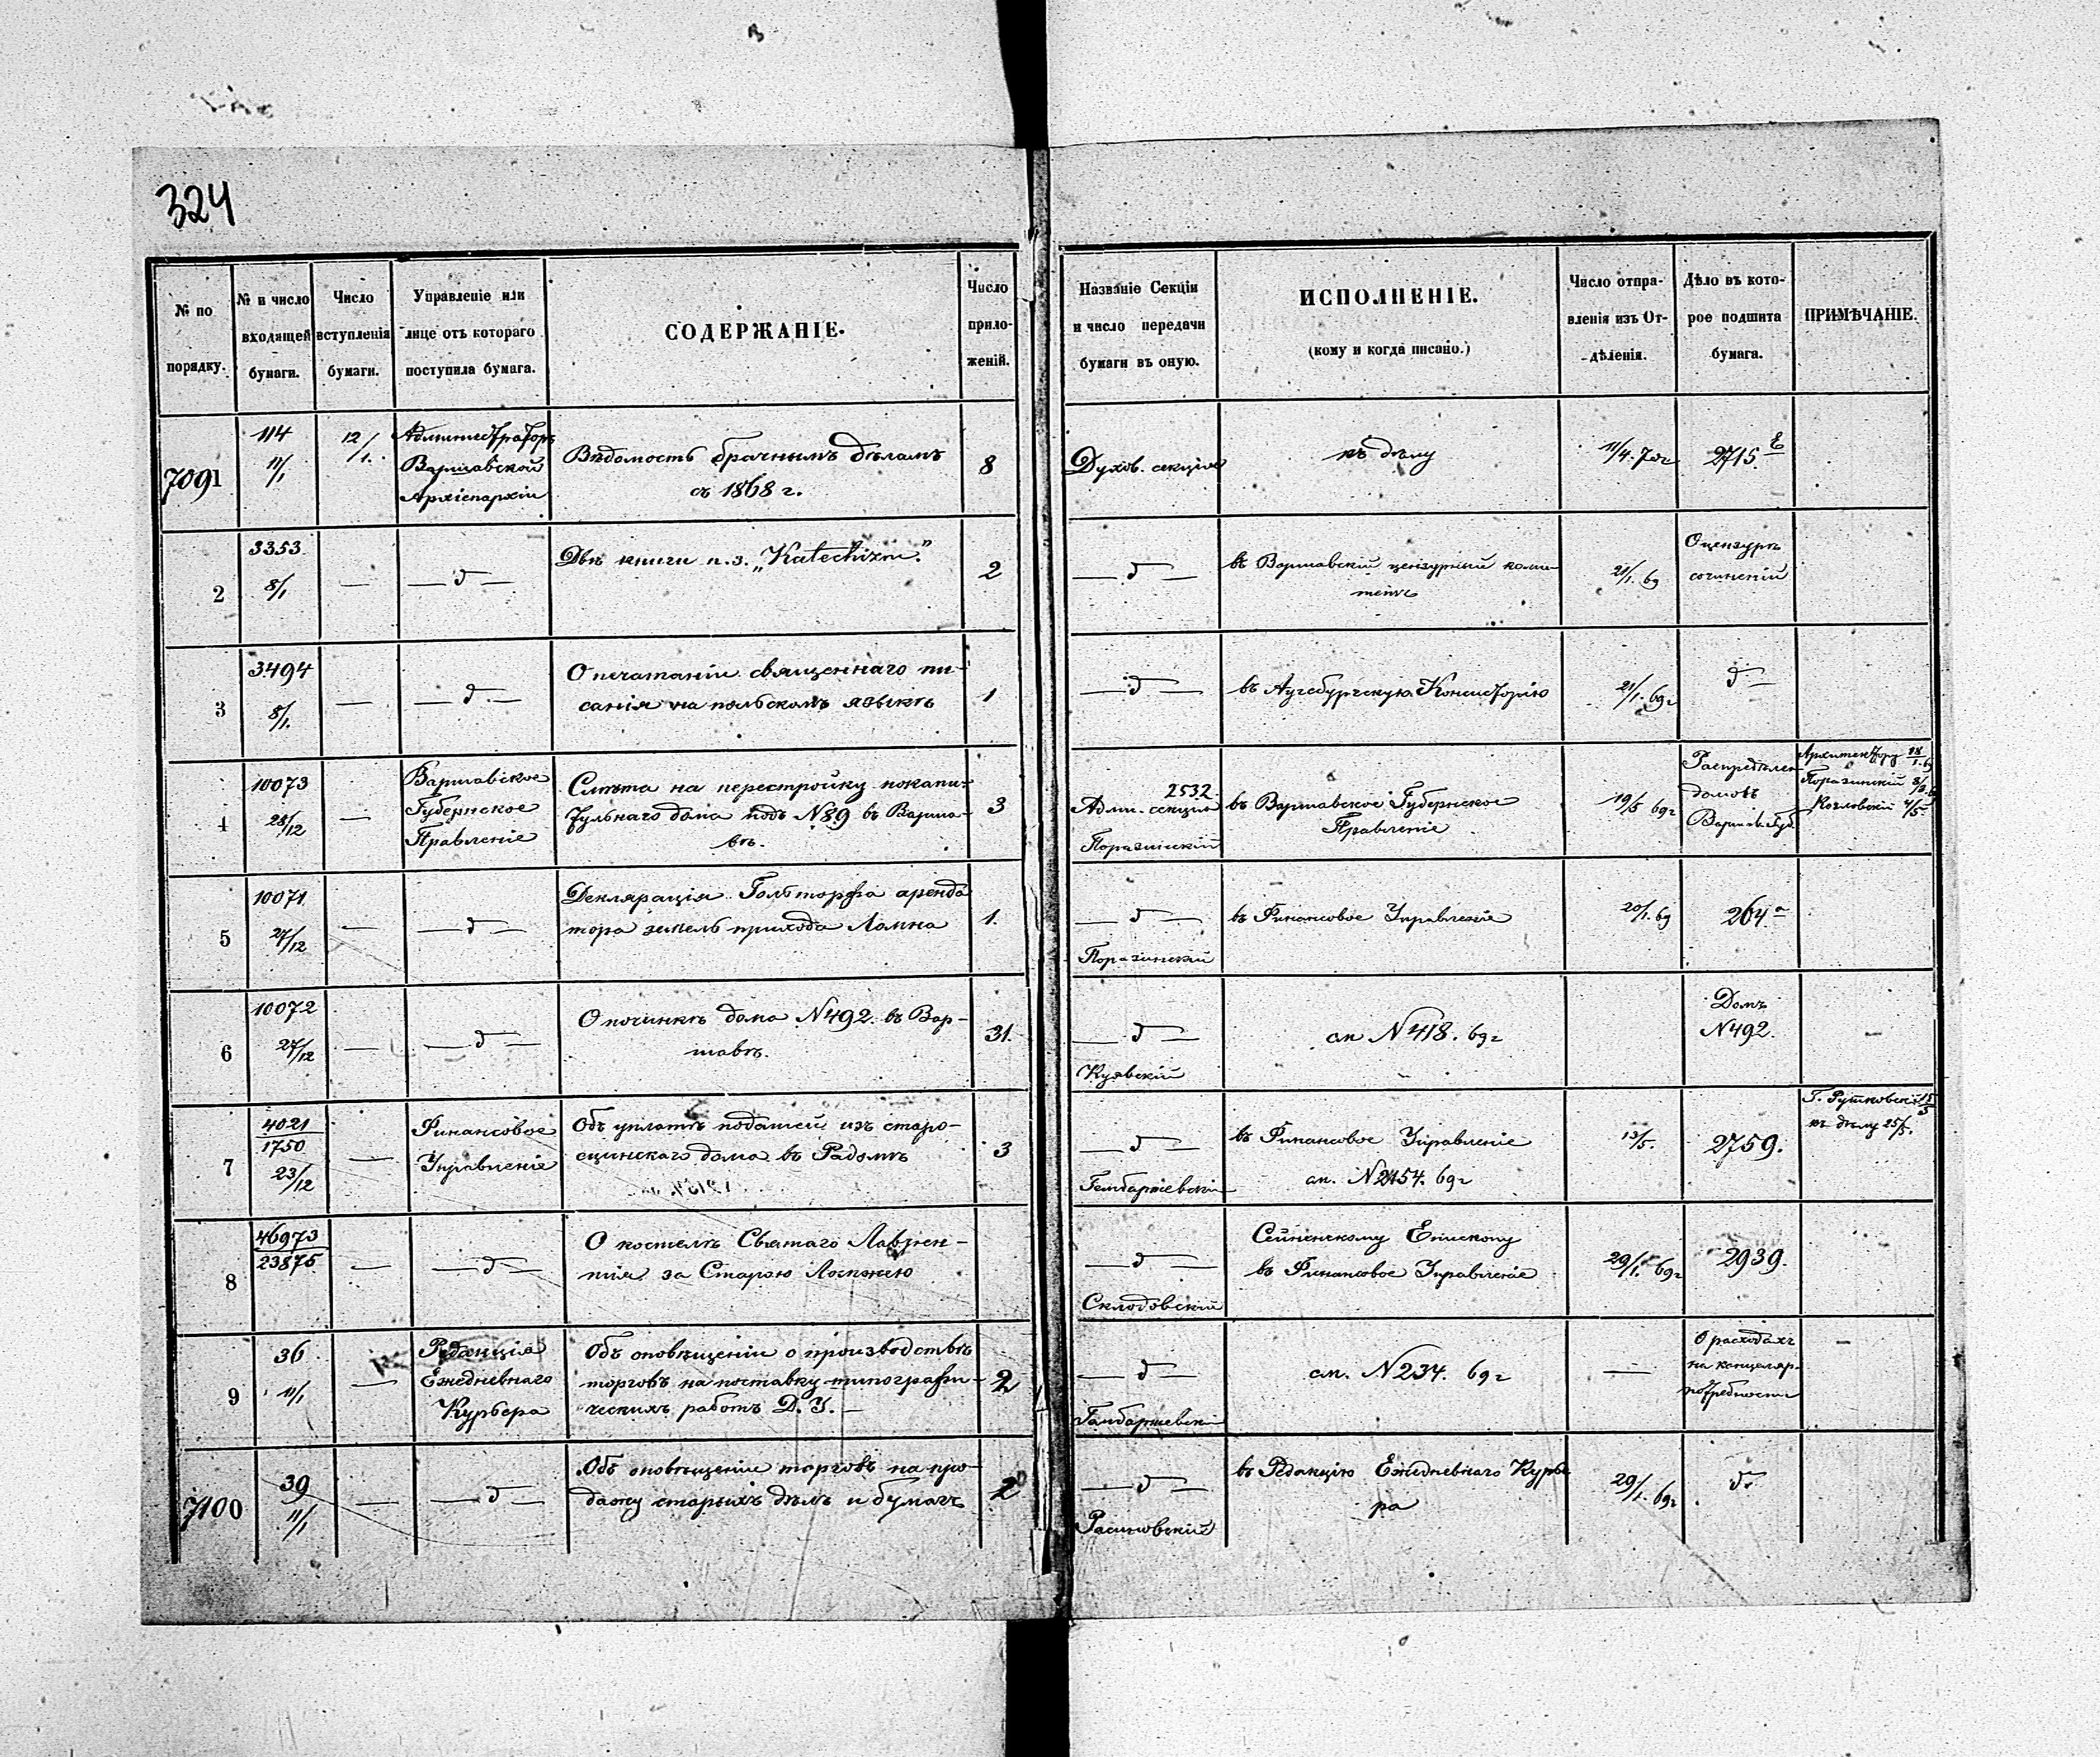 324
№ по порядку.
№ и число входящей бумаги.
Число вступленія бумаги.
Управленіе или лице отъ котораго поступила бумага.
СОДЕРЖАНІЕ.
Число прило- женій.
Названіе Секціи и число передачи бумаги въ оную.
ИСПОЛНЕНІЕ.
(кому и когда писано.)
Число отпра- вленія изъ От- дѣленія.
Дѣло въ кото- рое подшита бумага.
ПРИМѢЧАНІЕ.
7091
114
11/1
12/1.
Администраторъ
Варшавской
Архіепархіи
Вѣдомость брачнымъ дѣламъ
съ 1868 г.
8
Духов. секція
къ дѣлу
2715.
2
3353
8/1
—
— д —
Двѣ книги п.з. „Katechizm."
2
— д —
въ Варшавскій цензурный коми-
тетъ
21/1. 69
О цензурѣ
сочиненій
3
3494
8/1.
—
— д —
О печатаніи священнаго пи-
санія на польскомъ языкѣ
1
— д —
въ Аугсбургскую Консисторію
21/1. 69 г
д —
4
10073
28/12
—
Варшавское
Губернское
Правленіе
Смѣта на перестройку покапи-
тульнаго дома подъ N 89 въ Варша-
вѣ.
3
2532
Адми. секція
Поразинскій
въ Варшавское Губернское
Правленіе
19/5 69 г
домовъ
Архитектору
Поразинскій
Козловскій
5
10071
27/12
—
— д —
Декларація Гольторфа аренда
тора земель прихода Ломна
1.
— д —
Поразинскій
въ Финансовое Управленіе
20/1. 69
264 а
6
10072
27/12
—
— д —
О починкѣ дома N 492 въ Вар-
шавѣ.
31.
— д —
Куявскій
см N 418. 69 г
Домъ
N 492.
—
7
4021
1750
23/12
—
Финансовое
Управленіе
Объ уплатѣ податей изъ старо-
ецинскаго дома въ Радомѣ
3
— д —
въ Финансовое Управленіе
см. N 2154. 69 г
13/5.
2759.
къ дѣлу 25/5.
8
46973
23875
—
— д —
О костелѣ Святаго Лаврен-
тія за Старою
— д —
Склодовскій
Сейненскому Епископу
въ Финансовое Управленіе
29/1. 69 г
2939.
9
36
11/1
—
Редакція
Ежедневнаго
Курьера
Объ оповѣщеніи о производствѣ
торговъ на поставку типографи-
ческихъ работъ Д. У. —
2
— д —
см. N 234. 69 г
—
О расходахъ
на канцеляр.
потребности
—
7100
39
11/1
—
— д —
Объ оповѣщеніи торговъ на про-
дажу старыхъ дѣлъ и бумагъ
2
— д —
въ Редакцію Ежедневнаго Курье
ра
29/1. 69 г
д.